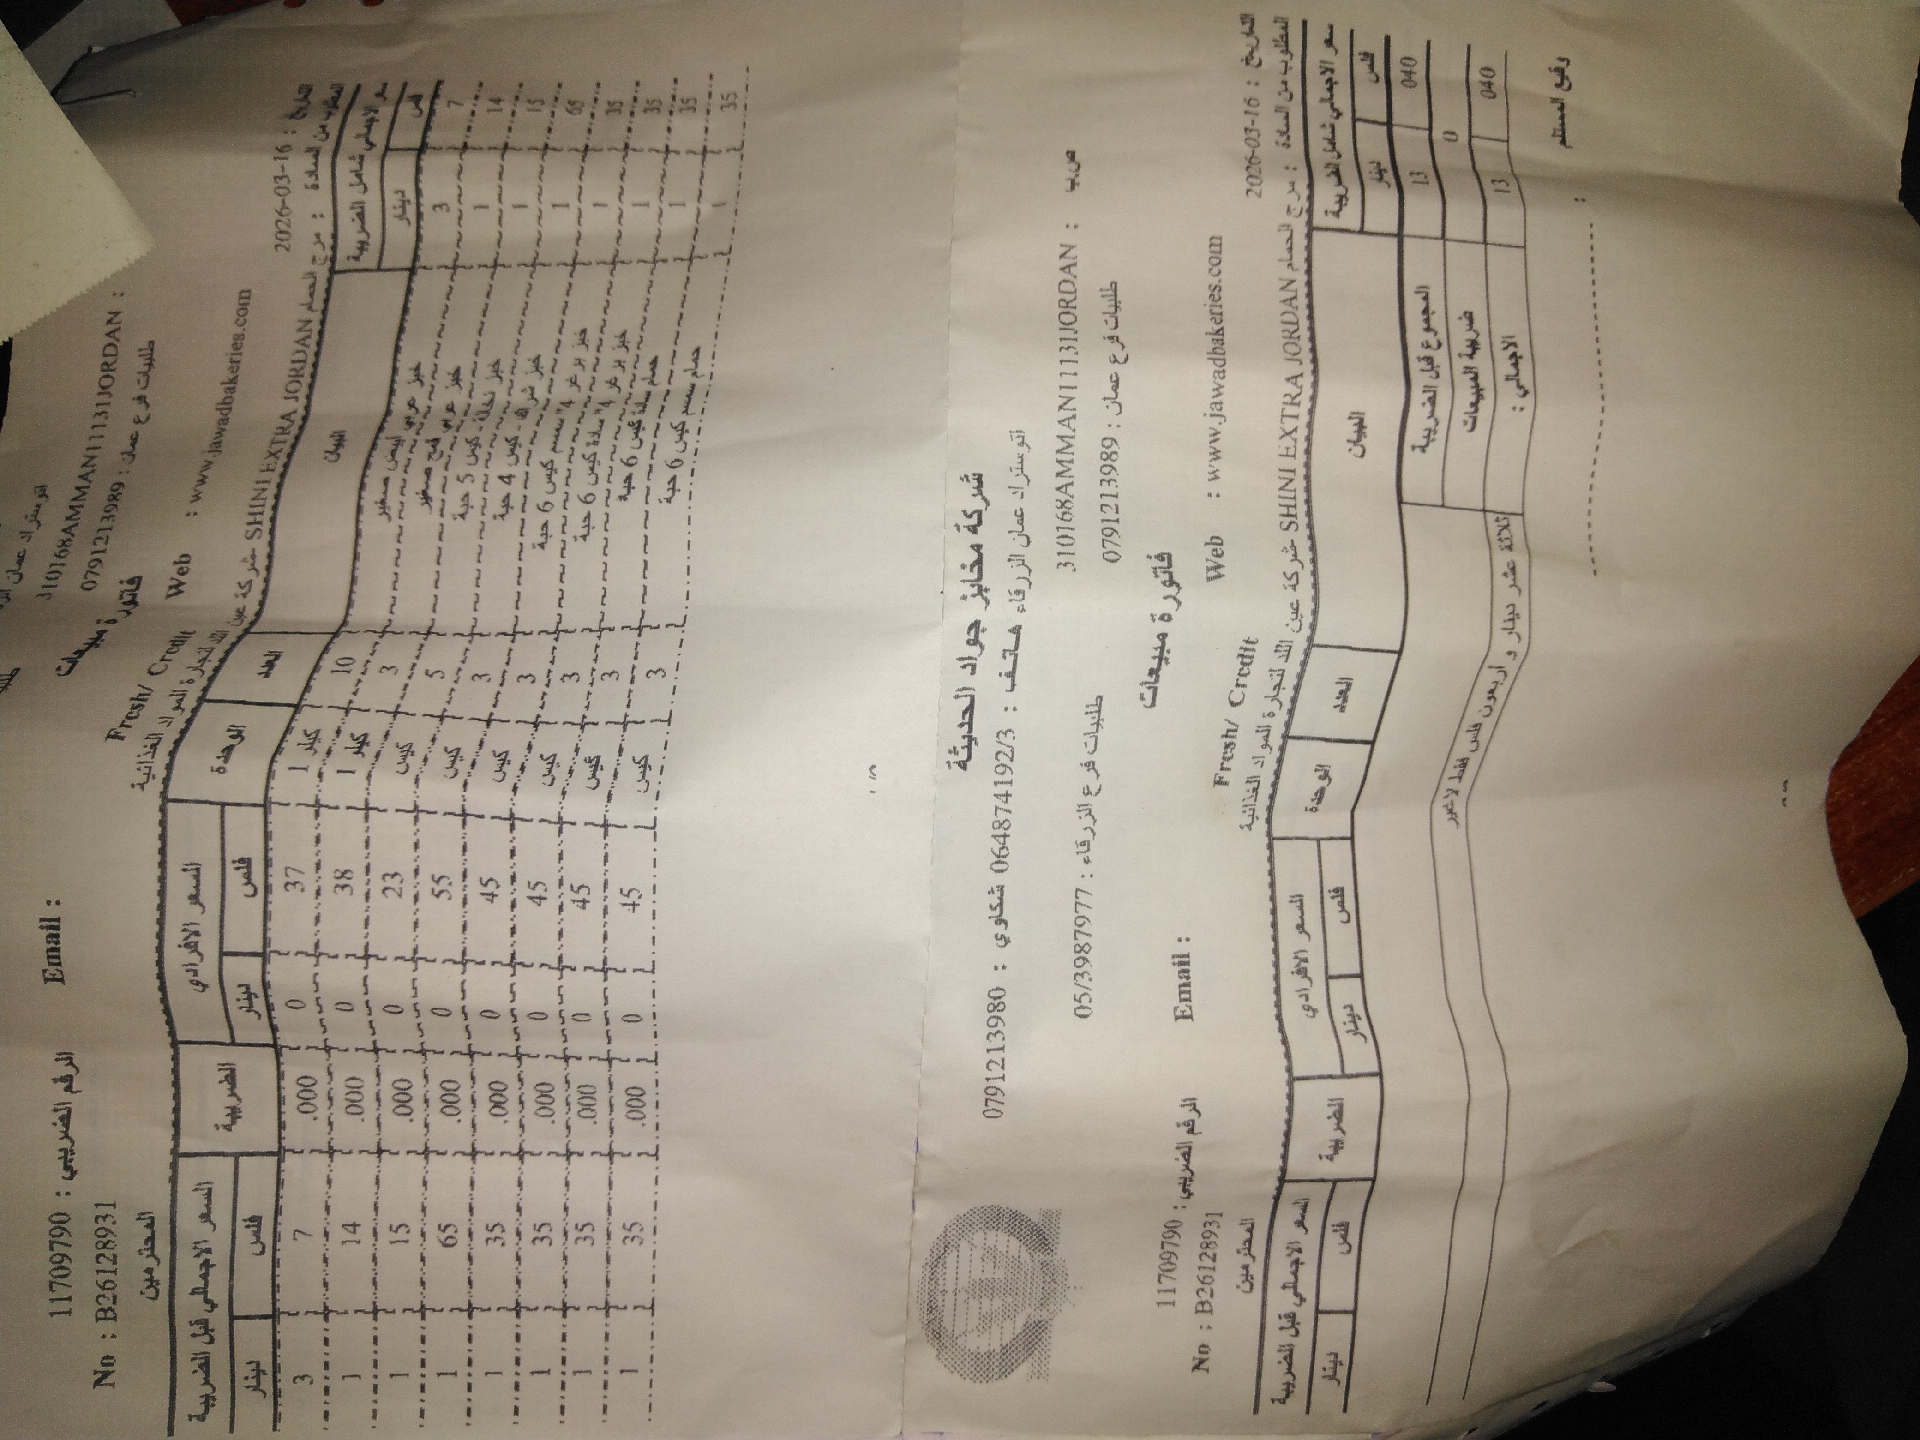 310168AMMAN11131JORDAN :
طلبيات فرع عمان : 0791213989
فاتورة مبيعات
الرقم الضريبي : 11709790
Email :
Web : www.jawadbakeries.com
No : B26128931
Fresh/ Credit
التاريخ : 2026-03-16
المطلوب من السادة : مرج الحمام SHINI EXTRA JORDAN شركة عين الله لتجارة المواد الغذائية المحترمين
سعر الاجمالي شامل الضريبة | البيان | العدد | الوحدة | السعر الافرادي | الضريبة | السعر الاجمالي قبل الضريبة
فلس | دينار | فلس | دينار | فلس | دينار
7 | 3 | خبز عربي ابيض صغير | 10 | كيلو 1 | 37 | 0 | .000 | 7 | 3
14 | 1 | خبز عربي قمح صغير | 3 | كيلو 1 | 38 | 0 | .000 | 14 | 1
15 | 1 | خبز نخالة - كيس 5 حبة | 5 | كيس | 23 | 0 | .000 | 15 | 1
65 | 1 | خبز شراك - كيس 4 حبة | 3 | كيس | 55 | 0 | .000 | 65 | 1
35 | 1 | خبز برغر 4" سمسم كيس 6 حبة | 3 | كيس | 45 | 0 | .000 | 35 | 1
35 | 1 | خبز برغر 4" سادة كيس 6 حبة | 3 | كيس | 45 | 0 | .000 | 35 | 1
35 | 1 | حمام سادة كيس 6 حبة | 3 | كيس | 45 | 0 | .000 | 35 | 1
35 | 1 | حمام سمسم كيس 6 حبة | 3 | كيس | 45 | 0 | .000 | 35 | 1
شركة مخابز جواد الحديثة
اتوستراد عمان الزرقاء هاتف : 064874192/3 شكاوي : 0791213980
ص.ب : 310168AMMAN11131JORDAN
طلبيات فرع عمان : 0791213989 طلبيات فرع الزرقاء : 05/3987977
فاتورة مبيعات
الرقم الضريبي : 11709790
Email :
Web : www.jawadbakeries.com
No : B26128931
Fresh/ Credit
التاريخ : 2026-03-16
المطلوب من السادة : مرج الحمام SHINI EXTRA JORDAN شركة عين الله لتجارة المواد الغذائية المحترمين
سعر الاجمالي شامل الضريبة | البيان | العدد | الوحدة | السعر الافرادي | الضريبة | السعر الاجمالي قبل الضريبة
فلس | دينار | فلس | دينار | فلس | دينار
040 | 13 | المجموع قبل الضريبة
0 | ضريبة المبيعات
040 | 13 | الاجمالي :
ثلاثة عشر دينار و اربعون فلس فقط لا غير
وقيع المستلم :